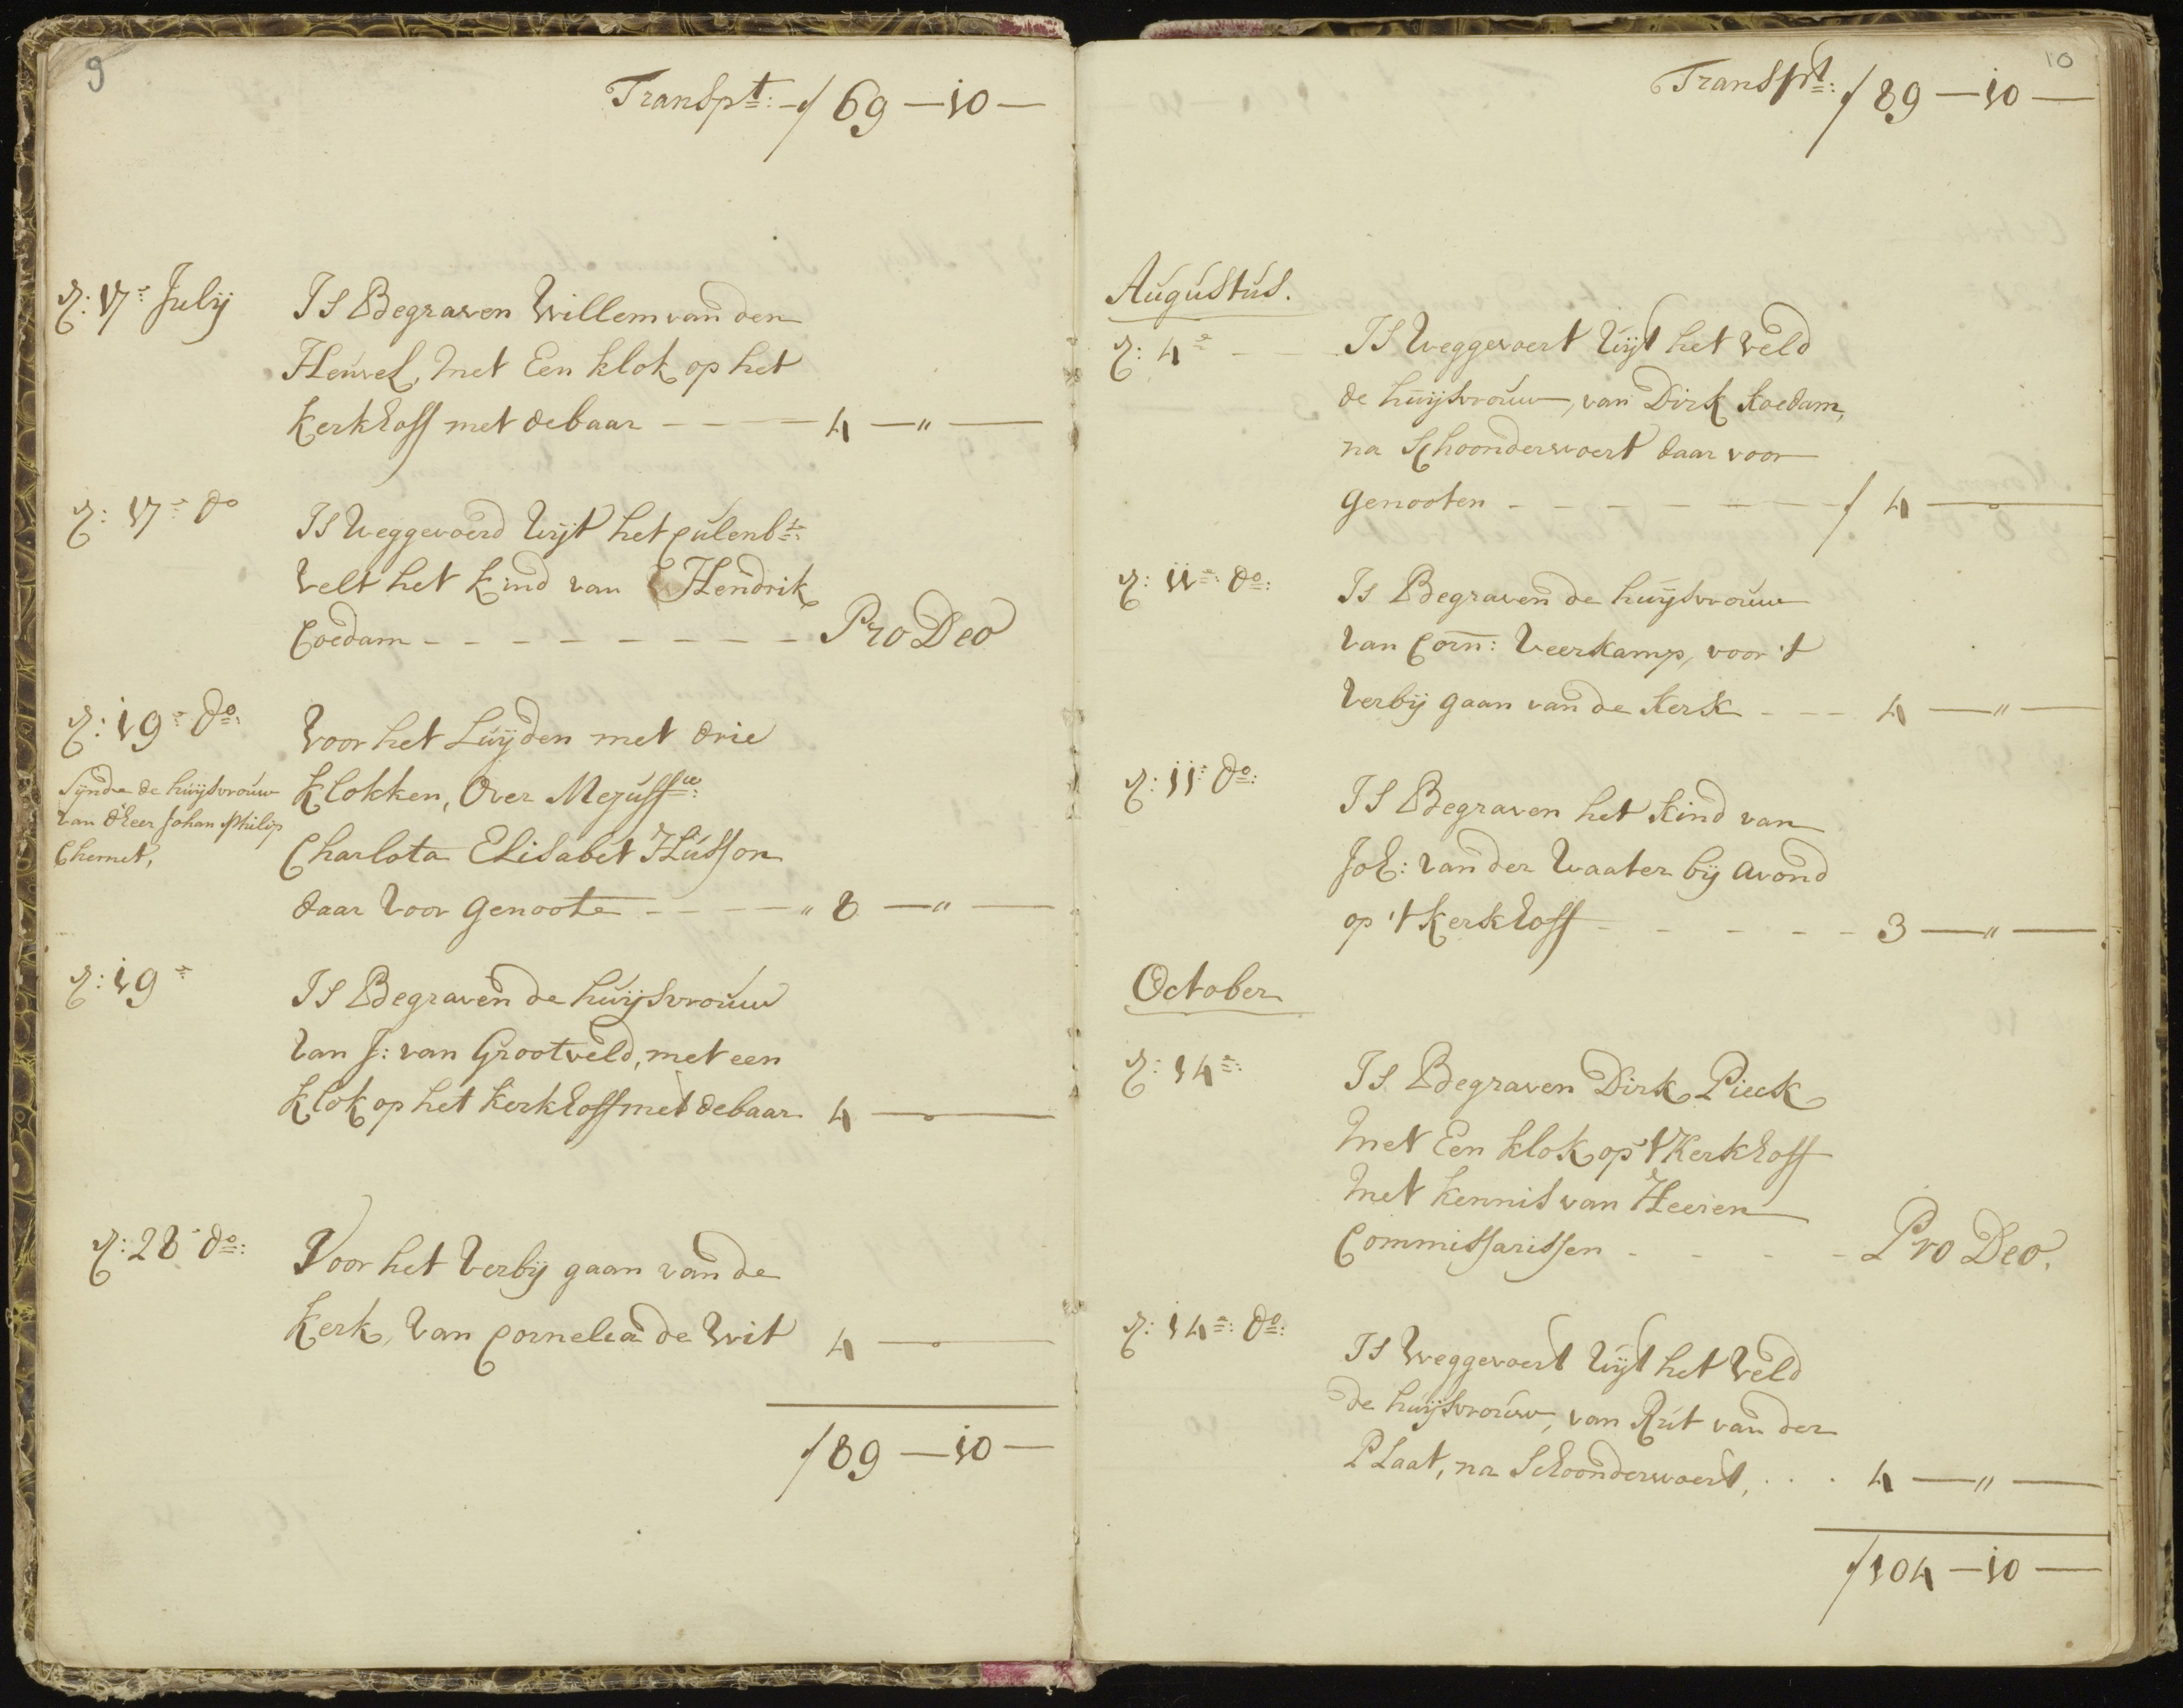 9
Transpt: - ƒ 69 — 10 —
d: 17e July
Is Begraven Willem van den
Heuvel, met Een klok op het
kerkhoff met de baar - - - - 4 — " —
d: 17e do
Is Weggevoerd Uyt het Culenb:
Velt het kind van Hendrik
Coedam - - - - - - - - - Pro Deo
d: 19e do:
Voor het Luyden met drie
Klokken, Over Mejuffw:
Charlota Elisabet Husson
daar Voor genoote - - - - " 8 — " —
Synde de huysvrouw
van d'heer Johan Philip
Chemet,
d: 19e
Is Begraven de huysvrouw
Van J: van Grootveld, met een
klok op het kerkhoff met de baar 4 — " —
d: 28e do:
Voor het Verby gaan van de
Kerk, Van Cornelia de Wit 4 — " —
ƒ 89 — 10 —
10
Transpt: ƒ 89 — 10 —
Augustus.
d: 4e - -
Is Weggevoert Uyt het Veld
de huysvrouw, van Dirk Koedam,
na Schoonderwoert daar voor
genooten - - - - - - - ƒ 4 — " —
d: 11e: do:
Is Begraven de huysvrouw
Van Corn: Veerkamp, voor 't
Verby gaan van de Kerk - - - 4 — " —
d: 11e do:
Is Begraven het Kind van
Joh: van der Waater by avond
op 't Kerkhoff - - - - - 3 — " —
October
d: 14e:
Is Begraven Dirk Pieck
Met Een klok op 't Kerkhoff
Met kennis van Heeren
Commissarissen - - - - Pro Deo.
d: 14e: do:
Is Weggevoert Uyt het Veld
de huysvrouw, van Rut van der
Plaat, na Schoonderwoert, . . . 4 — " —
ƒ 104 — 10 —